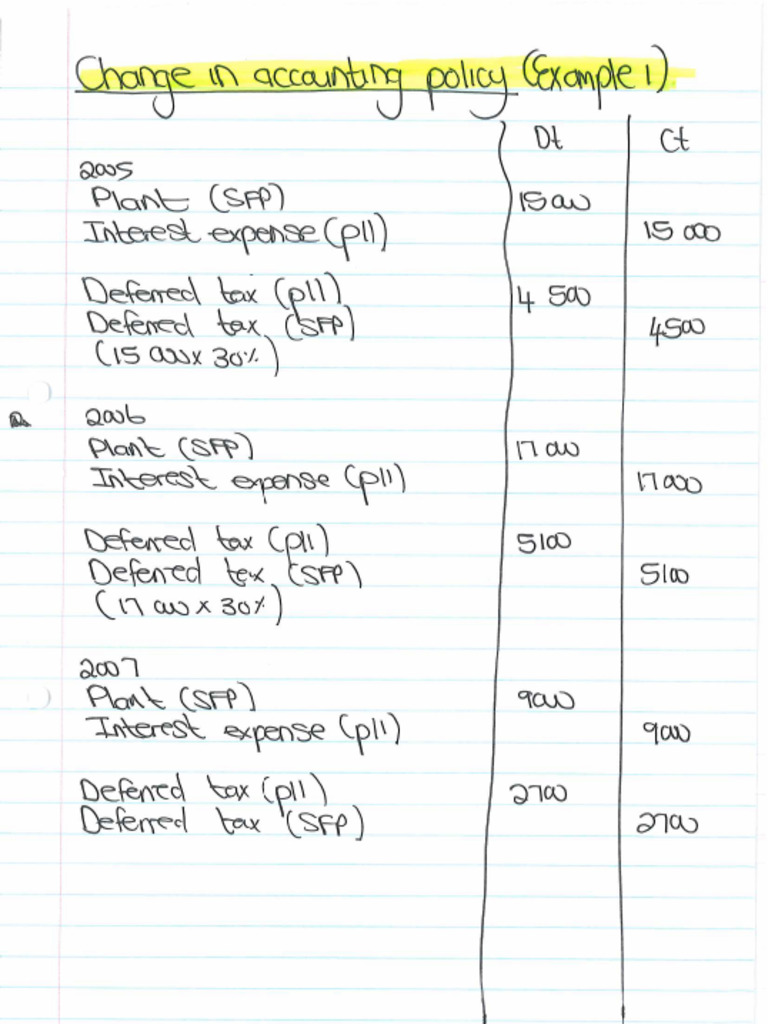 Change in accounting policy (Example 1)
Dt Ct
2005
Plant (SFP) 15 000
Interest expense (p/l) 15 000
Deferred tax (p/l) 4 500
Deferred tax (SFP) 4500
(15 000 x 30%)
2006
Plant (SFP) 17 000
Interest expense (p/l) 17 000
Deferred tax (p/l) 5100
Deferred tax (SFP) 5100
(17 000 x 30%)
2007
Plant (SFP) 9000
Interest expense (p/l) 9000
Deferred tax (p/l) 2700
Deferred tax (SFP) 2700